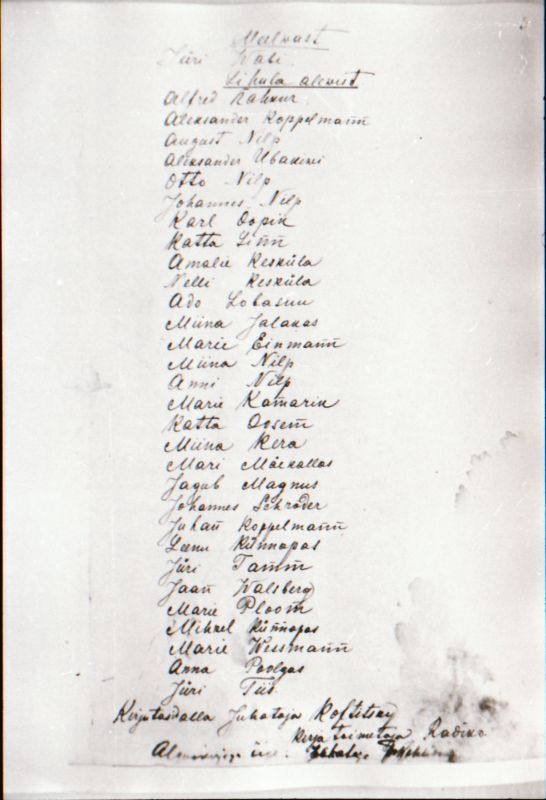 Meelwast
Jüri Wabi
Lihula alewist
Alfred Rahkur
Aleksander Koppelmann
August Nilp
Aleksander Ubakiwi
Otto Nilp
Johannes Nilp
Karl Oopik
Katta Linn
Amalie Kesküla
Nelli Kesküla
Ado Lobasuu
Miina Jalakas
Marie Einmann
Miina Nilp
Anni Nilp
Marie Kamarik
Katta Oosem
Miina Kera
Mari Mäekallas
Jagub Magnus
Johannes Schröder
Juhan Koppelmann
Leenu Künnapas
Jüri Tamm
Jaan Walsberg
Marie Ploom
Mihkel Künnapas
Marie Wessmann
Anna Poolgas
Jüri Tiis
Kirjutasdalla Juhataja
Kirja toimetaja
õige: Juhataja